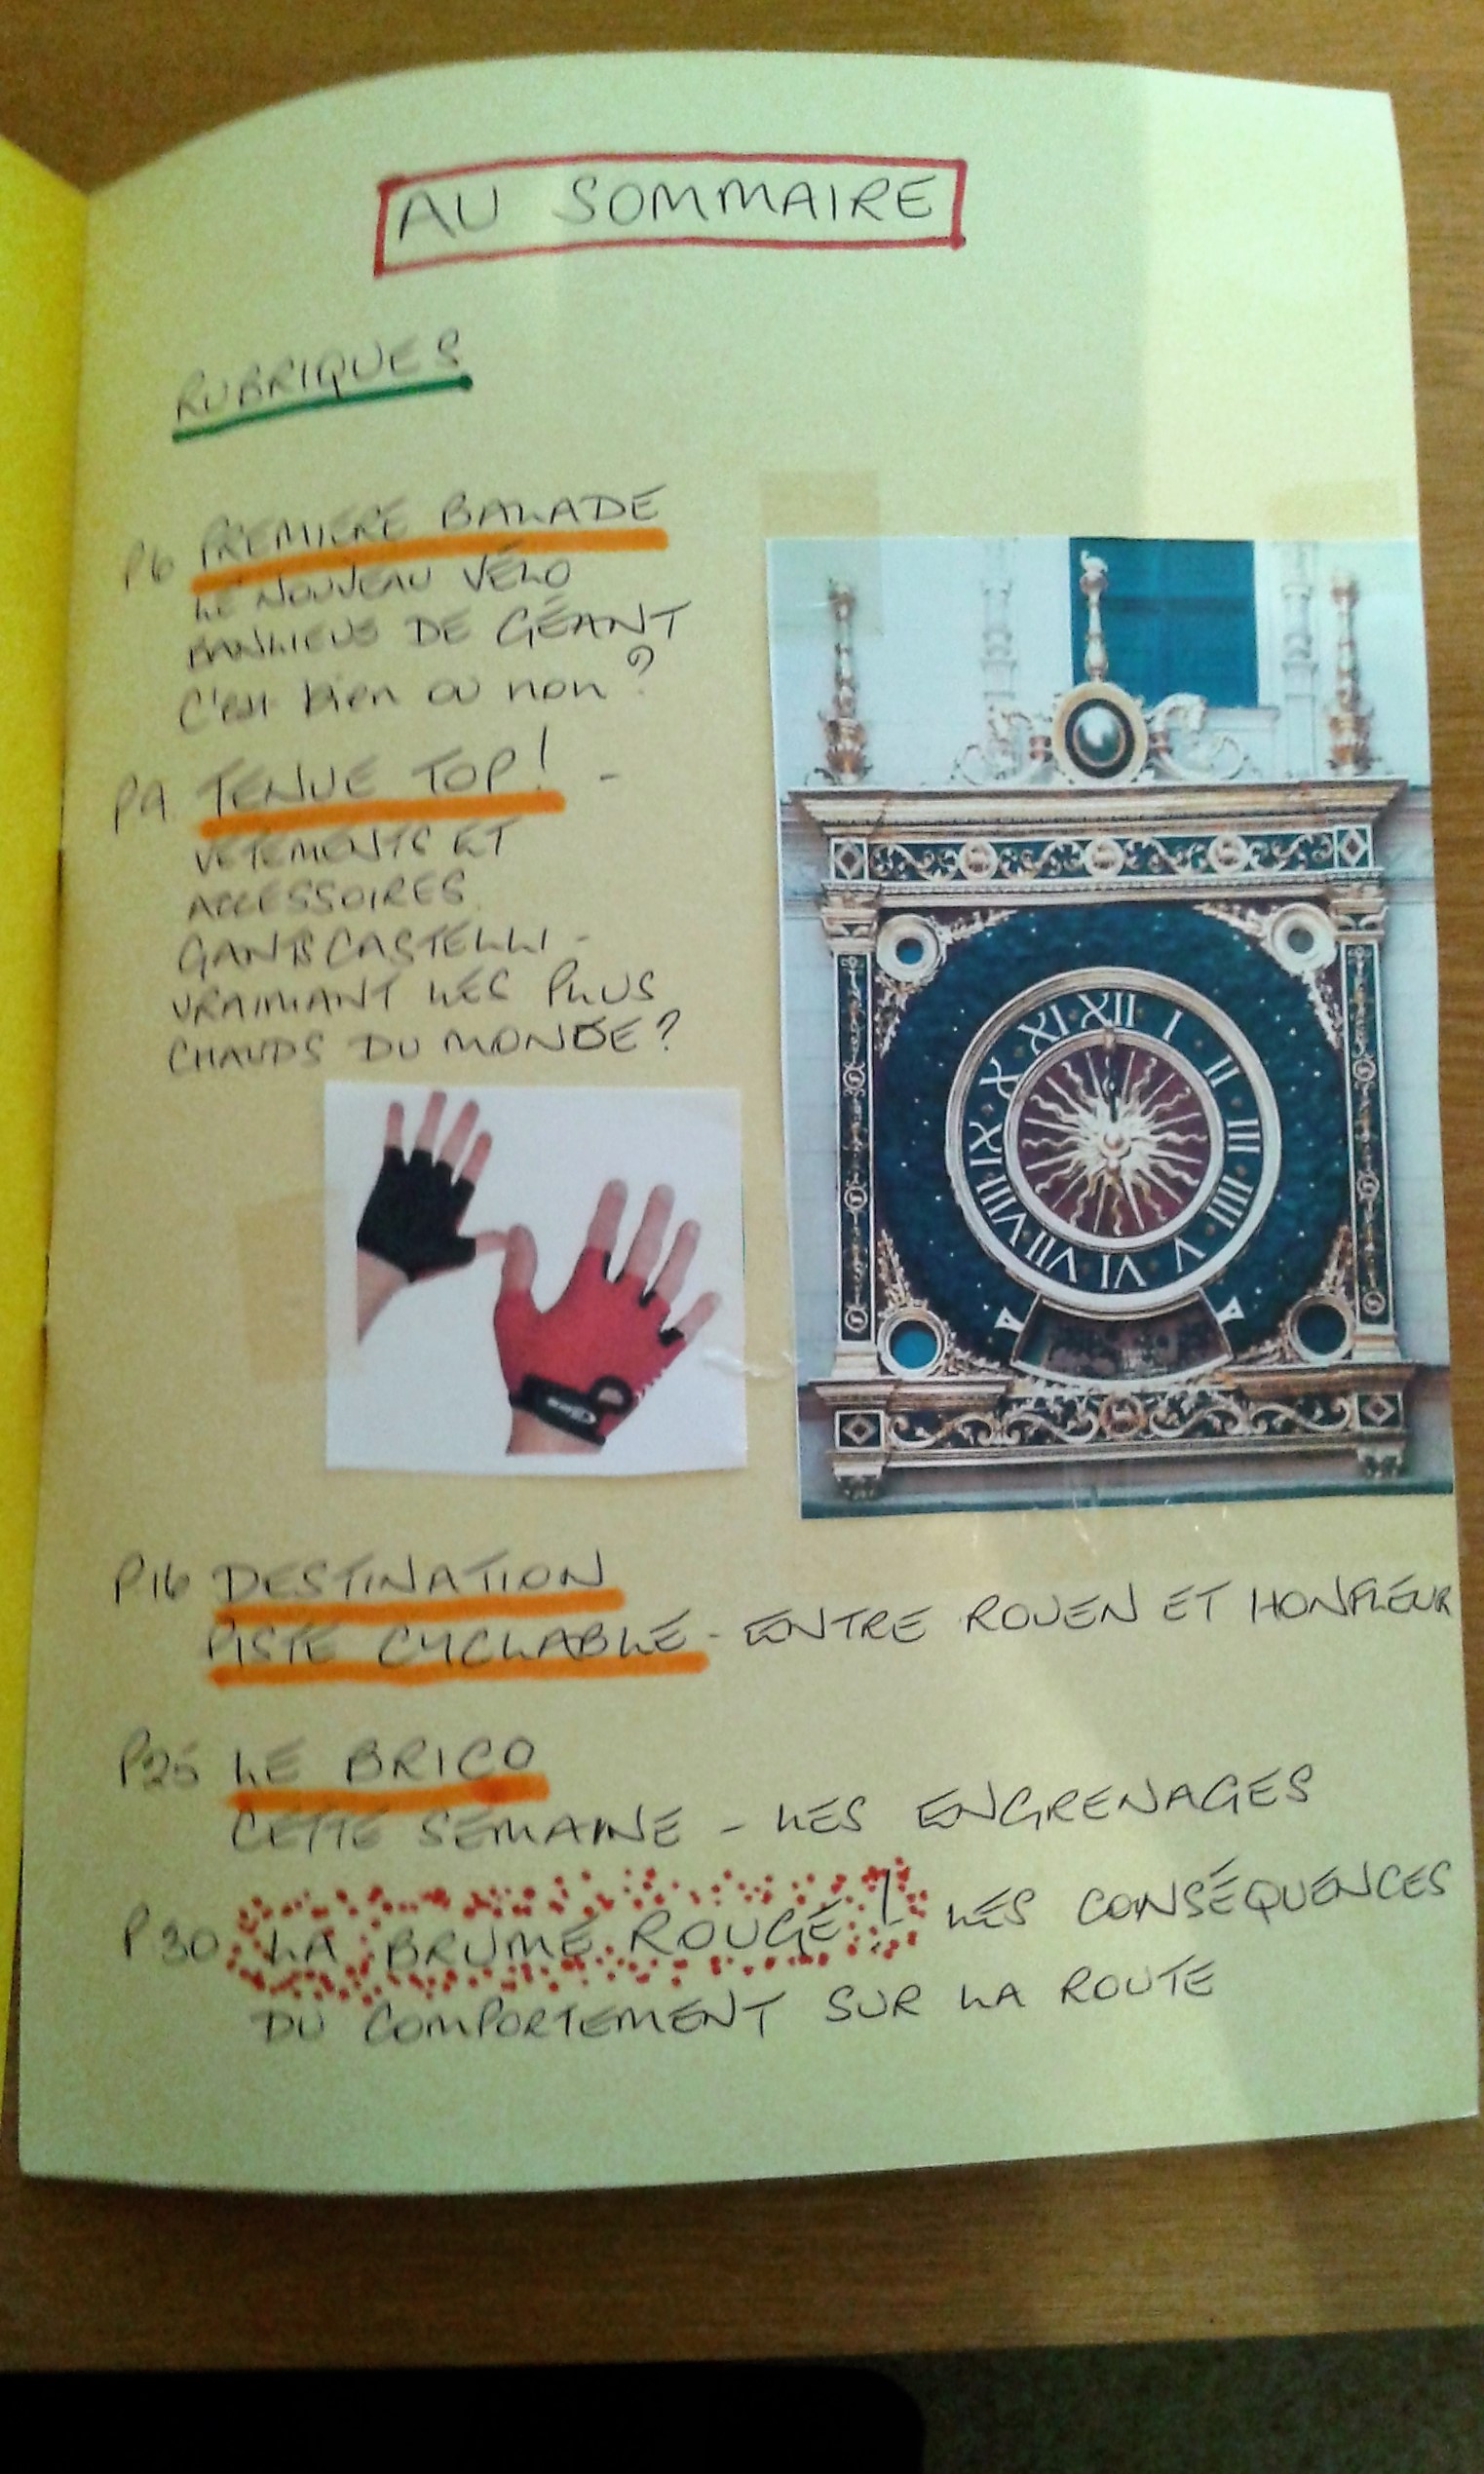 AU SOMMAIRE
RUBRIQUES
P6 PREMIERE BALADE
LE NOUVEAU VÉLO
BANLIEUE DE GÉANT
C'est bien ou non?
P9. TENUE TOP! -
VETEMENTS ET
ACCESSOIRES.
GANTS CASTELLI -
VRAIMANT LES PLUS
CHAUDS DU MONDE?
XII I II III IIII V VI VII VIII IX X XI
P16 DESTINATION
PISTE CYCLABLE - ENTRE ROUEN ET HONFLEUR
P25 LE BRICO
CETTE SEMAINE - LES ENGRENAGES
P30 LA BRUME ROUGE! LES CONSÉQUENCES
DU COMPORTEMENT SUR LA ROUTE